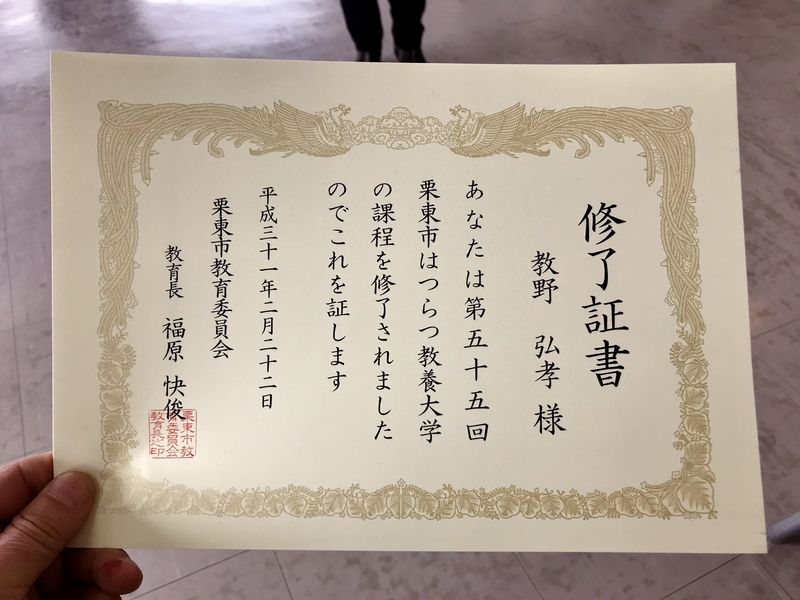 修了証書
教野 弘孝 様
あなたは第五十五回
栗東市はつらつ教養大学
の課程を修了されました
のでこれを証します
平成三十一年二月二十二日
栗東市教育委員会
教育長 福原 快俊
栗東市教
育委員会
教育長之印